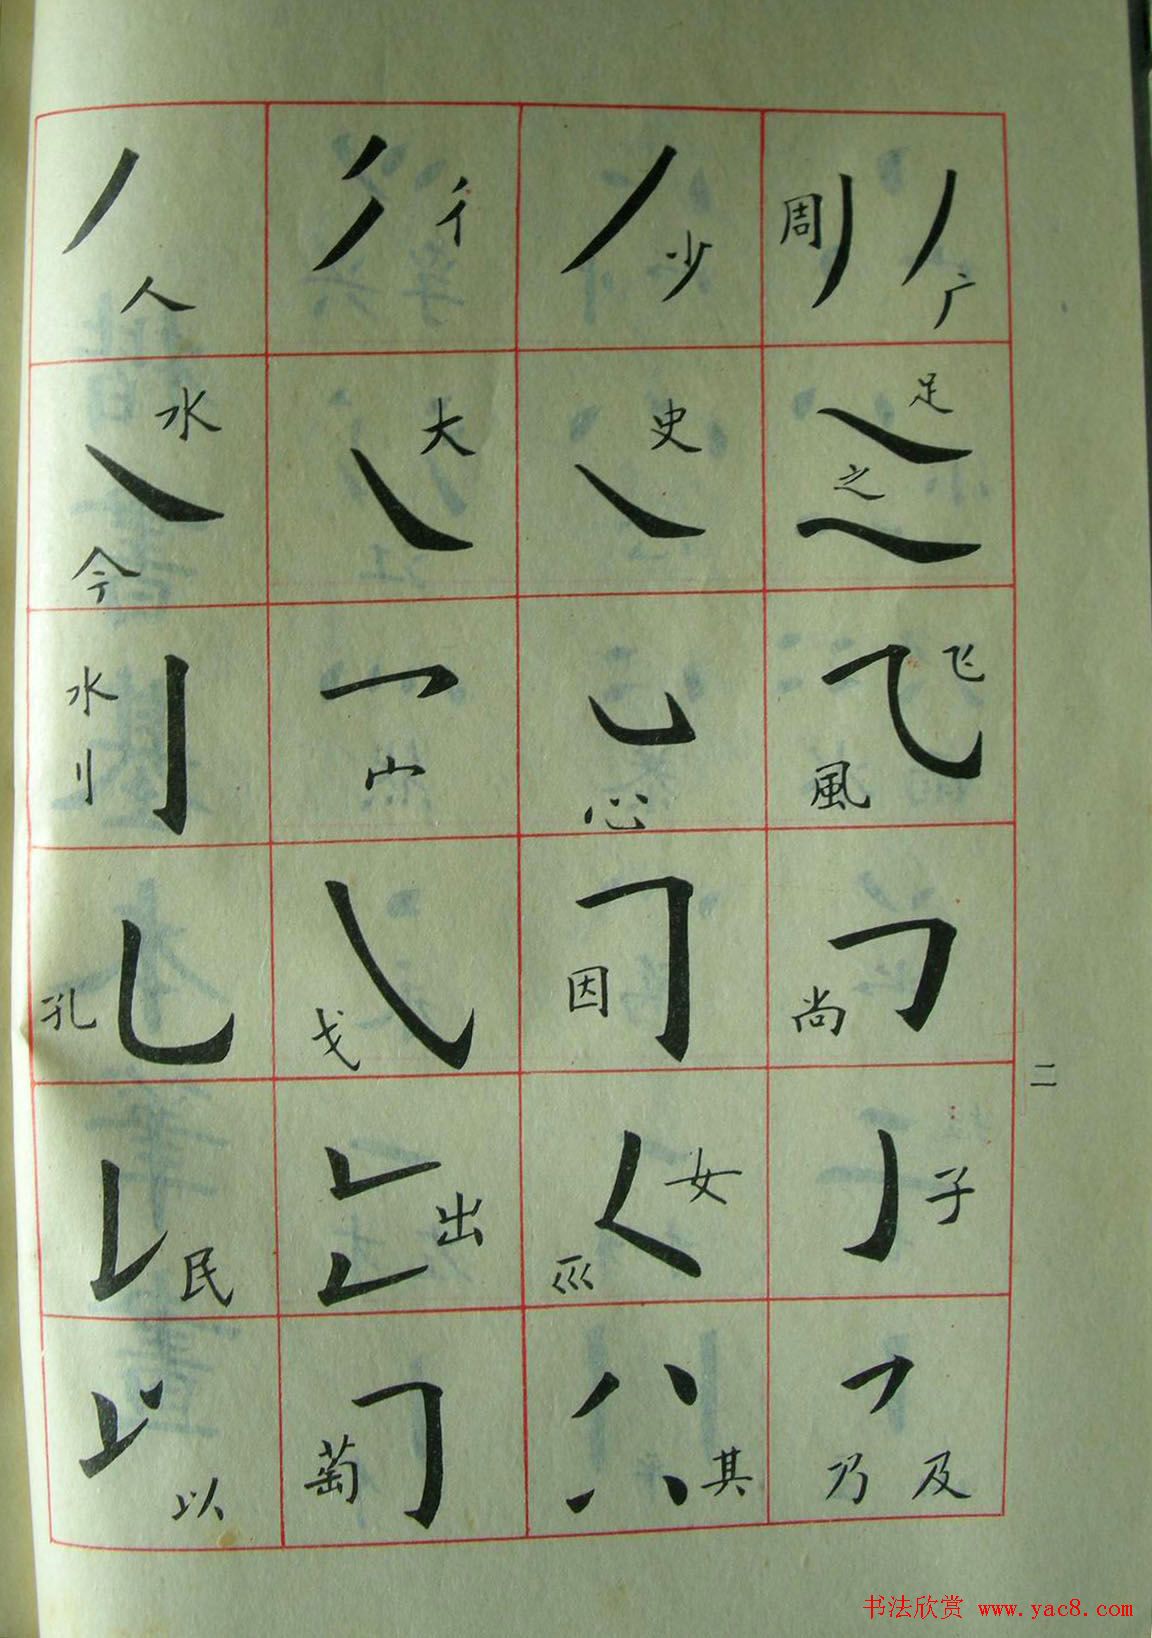 周 广
少
彳
人
足 之
史
大
水 今
飞 風
心
宀
水 刂
尚
因
戈
孔
子
女 巛
出
民
乃 及
其
萄
以
二
书法欣赏 www.yac8.com